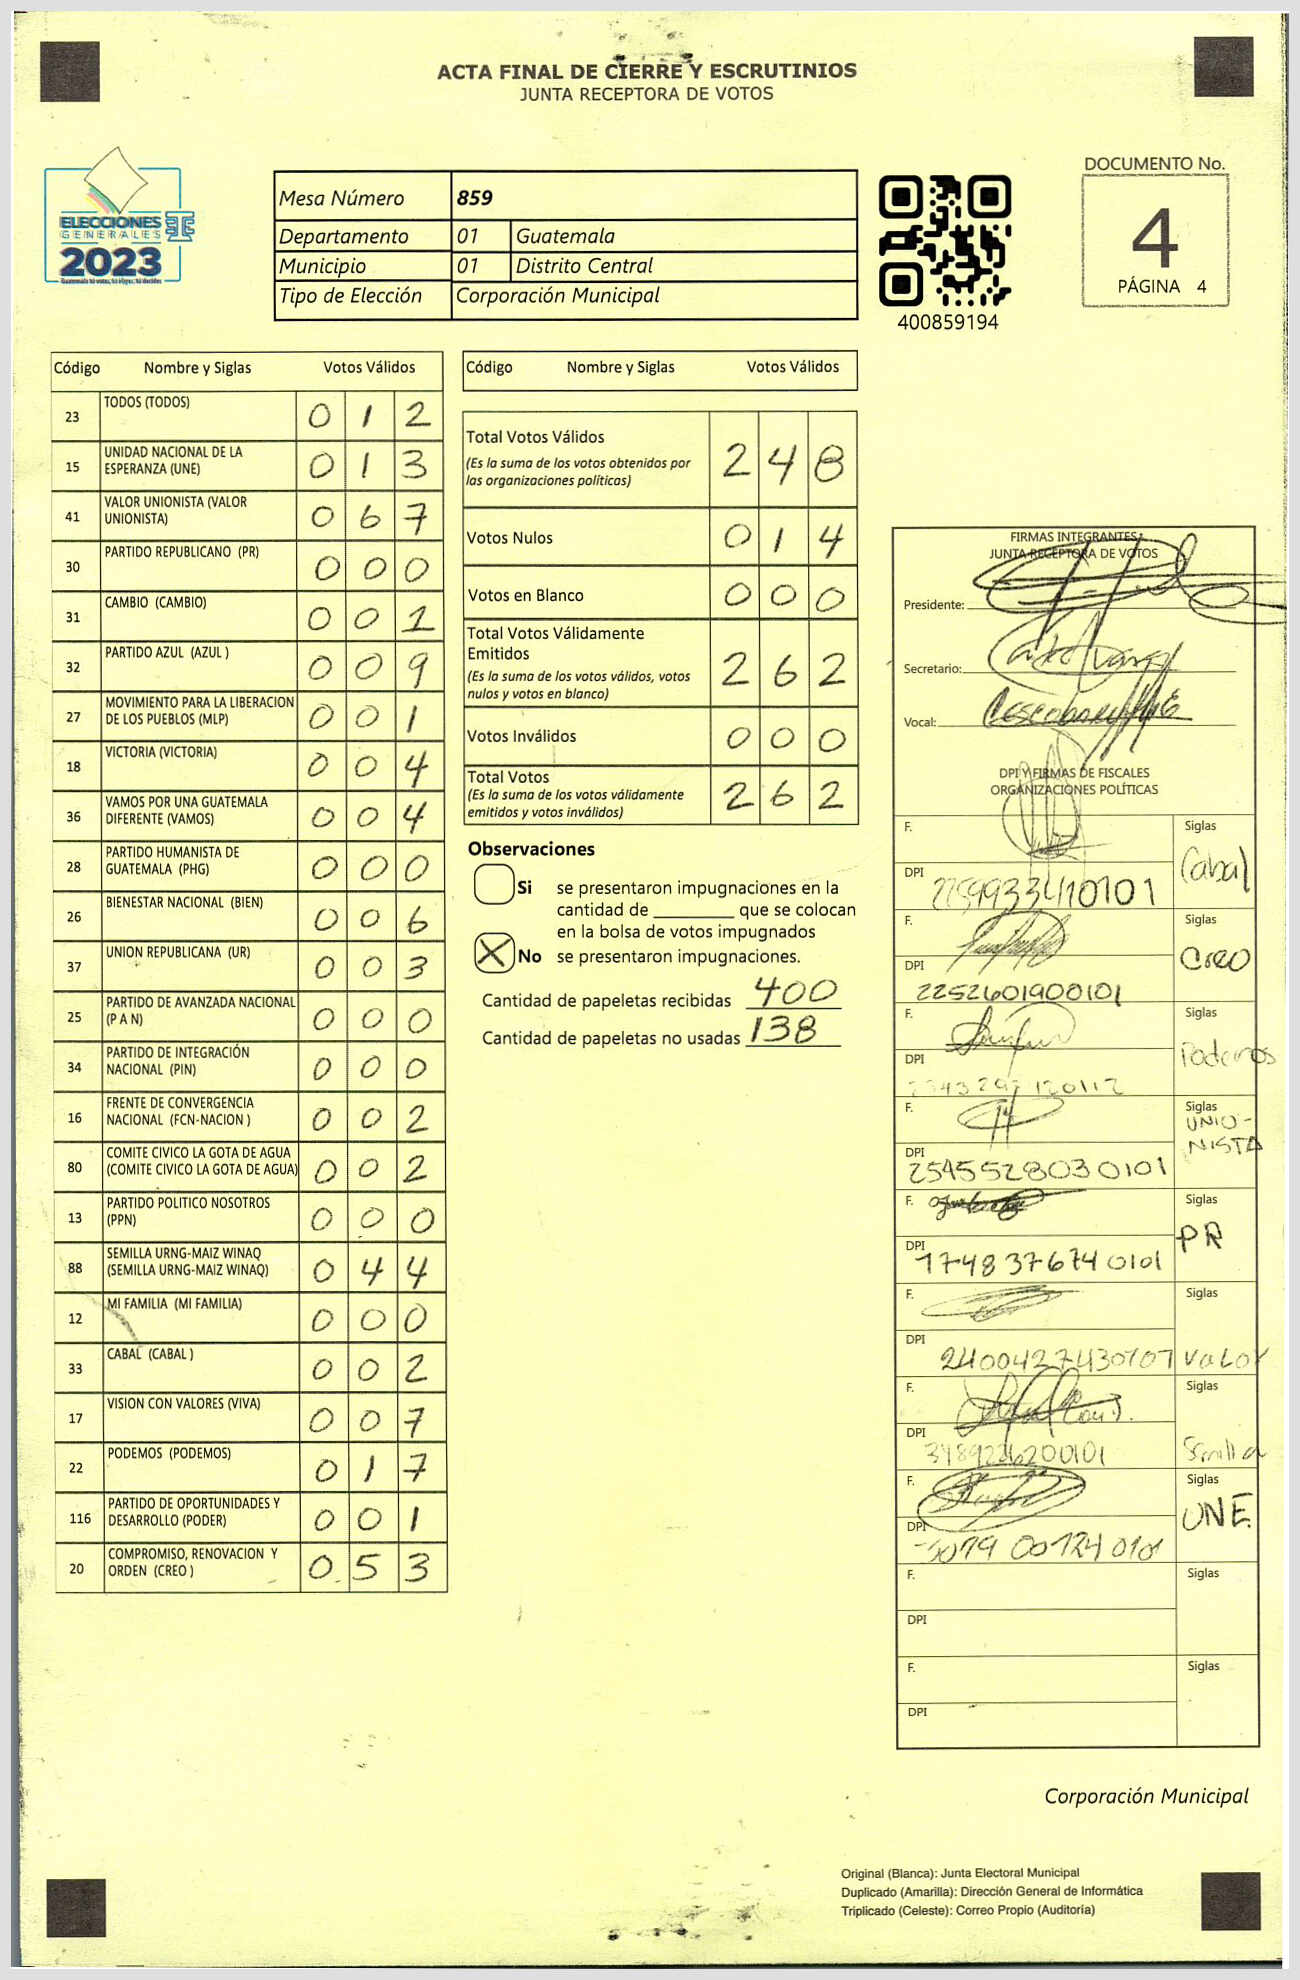 ACTA FINAL DE CIERRE Y ESCRUTINIOS
JUNTA RECEPTORA DE VOTOS
ELECCIONES
GENERALES
2023
Mesa Número 859
Departamento 01 Guatemala
Municipio 01 Distrito Central
Tipo de Elección Corporación Municipal
400859194
DOCUMENTO No.
4
PÁGINA 4
Código Nombre y Siglas Votos Válidos
23 TODOS (TODOS) 0 1 2
15 UNIDAD NACIONAL DE LA
ESPERANZA (UNE) 0 1 3
41 VALOR UNIONISTA (VALOR
UNIONISTA) 0 6 7
30 PARTIDO REPUBLICANO (PR) 0 0 0
31 CAMBIO (CAMBIO) 0 0 1
32 PARTIDO AZUL (AZUL ) 0 0 9
27 MOVIMIENTO PARA LA LIBERACION
DE LOS PUEBLOS (MLP) 0 0 1
18 VICTORIA (VICTORIA) 0 0 4
36 VAMOS POR UNA GUATEMALA
DIFERENTE (VAMOS) 0 0 4
28 PARTIDO HUMANISTA DE
GUATEMALA (PHG) 0 0 0
26 BIENESTAR NACIONAL (BIEN) 0 0 6
37 UNION REPUBLICANA (UR) 0 0 3
25 PARTIDO DE AVANZADA NACIONAL
(P A N) 0 0 0
34 PARTIDO DE INTEGRACIÓN
NACIONAL (PIN) 0 0 0
16 FRENTE DE CONVERGENCIA
NACIONAL (FCN-NACION ) 0 0 2
80 COMITE CIVICO LA GOTA DE AGUA
(COMITE CIVICO LA GOTA DE AGUA) 0 0 2
13 PARTIDO POLITICO NOSOTROS
(PPN) 0 0 0
88 SEMILLA URNG-MAIZ WINAQ
(SEMILLA URNG-MAIZ WINAQ) 0 4 4
12 MI FAMILIA (MI FAMILIA) 0 0 0
33 CABAL (CABAL ) 0 0 2
17 VISION CON VALORES (VIVA) 0 0 7
22 PODEMOS (PODEMOS) 0 1 7
116 PARTIDO DE OPORTUNIDADES Y
DESARROLLO (PODER) 0 0 1
20 COMPROMISO, RENOVACION Y
ORDEN (CREO ) 0 5 3
Código Nombre y Siglas Votos Válidos
Total Votos Válidos 2 4 8
(Es la suma de los votos obtenidos por
las organizaciones políticas)
Votos Nulos 0 1 4
Votos en Blanco 0 0 0
Total Votos Válidamente
Emitidos 2 6 2
(Es la suma de los votos válidos, votos
nulos y votos en blanco)
Votos Inválidos 0 0 0
Total Votos 2 6 2
(Es la suma de los votos válidamente
emitidos y votos inválidos)
Observaciones
Si se presentaron impugnaciones en la
cantidad de ________ que se colocan
en la bolsa de votos impugnados
X No se presentaron impugnaciones.
Cantidad de papeletas recibidas 400
Cantidad de papeletas no usadas 138
FIRMAS INTEGRANTES
JUNTA RECEPTORA DE VOTOS
Presidente:
Secretario:
Vocal:
DPI Y FIRMAS DE FISCALES
ORGANIZACIONES POLÍTICAS
F. Siglas
Cabal
DPI 2259933410101
F. Siglas
Creo
DPI 2252601900101
F. Siglas
Podemos
DPI
F. Siglas
UNIO-
NISTA
DPI 2545528030101
F. Siglas
PR
DPI 1748376740101
F. Siglas
Valor
DPI
F. Siglas
Semilla
DPI
F. Siglas
UNE
DPI
F. Siglas
DPI
F. Siglas
DPI
Corporación Municipal
Original (Blanca): Junta Electoral Municipal
Duplicado (Amarilla): Dirección General de Informática
Triplicado (Celeste): Correo Propio (Auditoría)